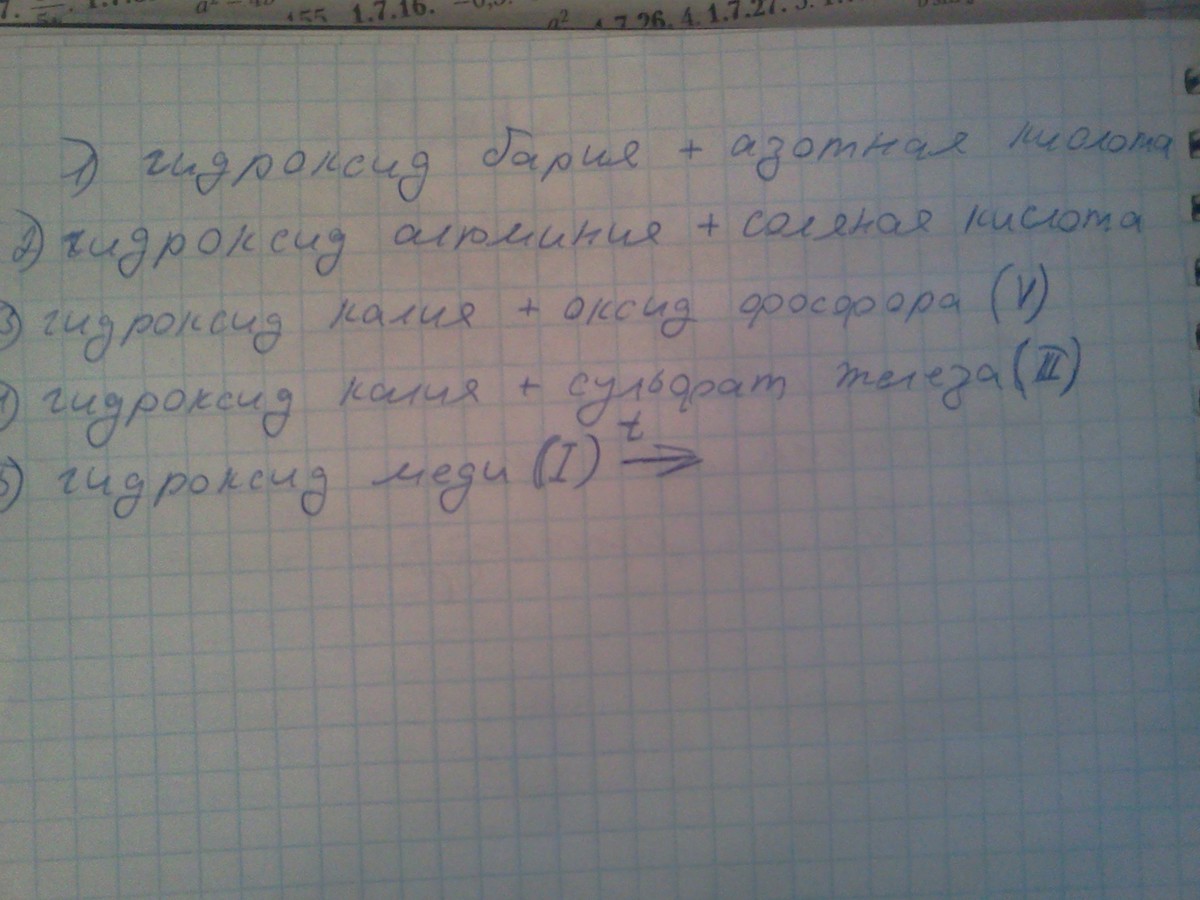 1.7.16. -0,5.
155
1.7.26. 4. 1.7.27.
1) гидроксид бария + азотная кислота
2) гидроксид алюминия + соляная кислота
3) гидроксид калия + оксид фосфора (V)
4) гидроксид калия + сульфрат железа (III)
5) гидроксид меди (I) t →